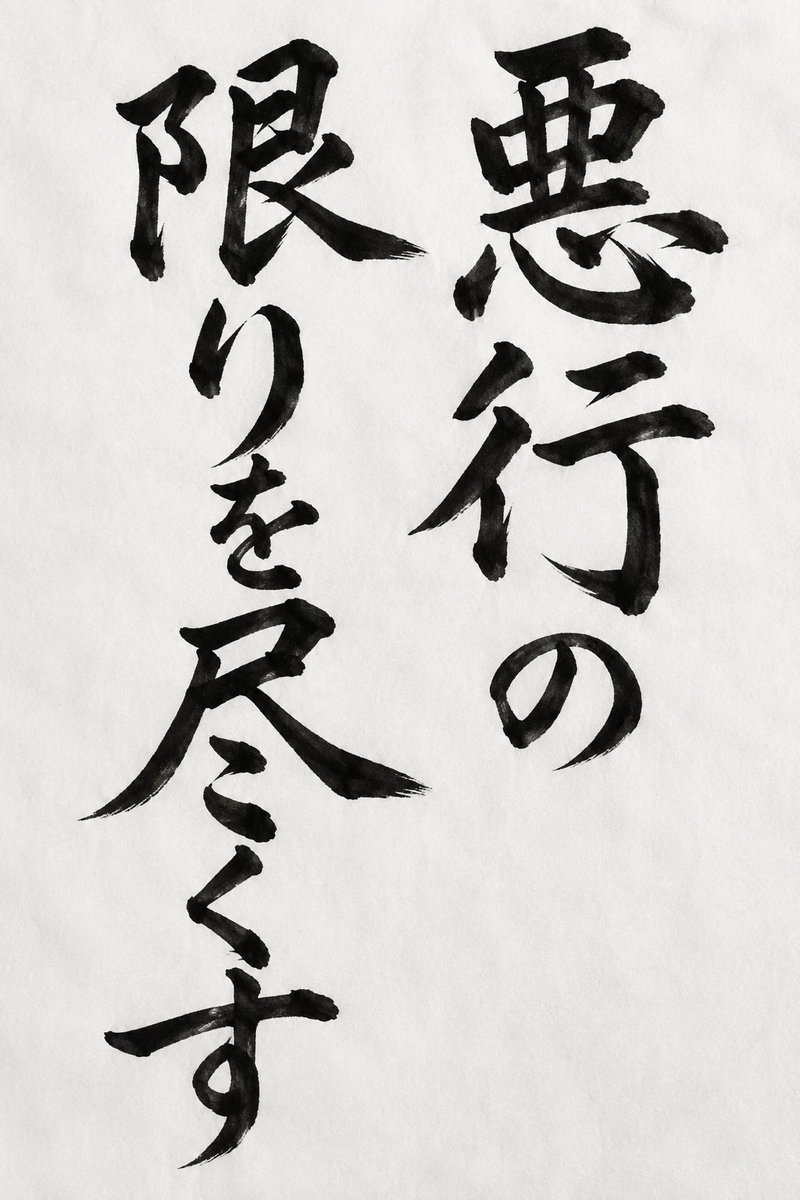 悪行の
限りを尽くす